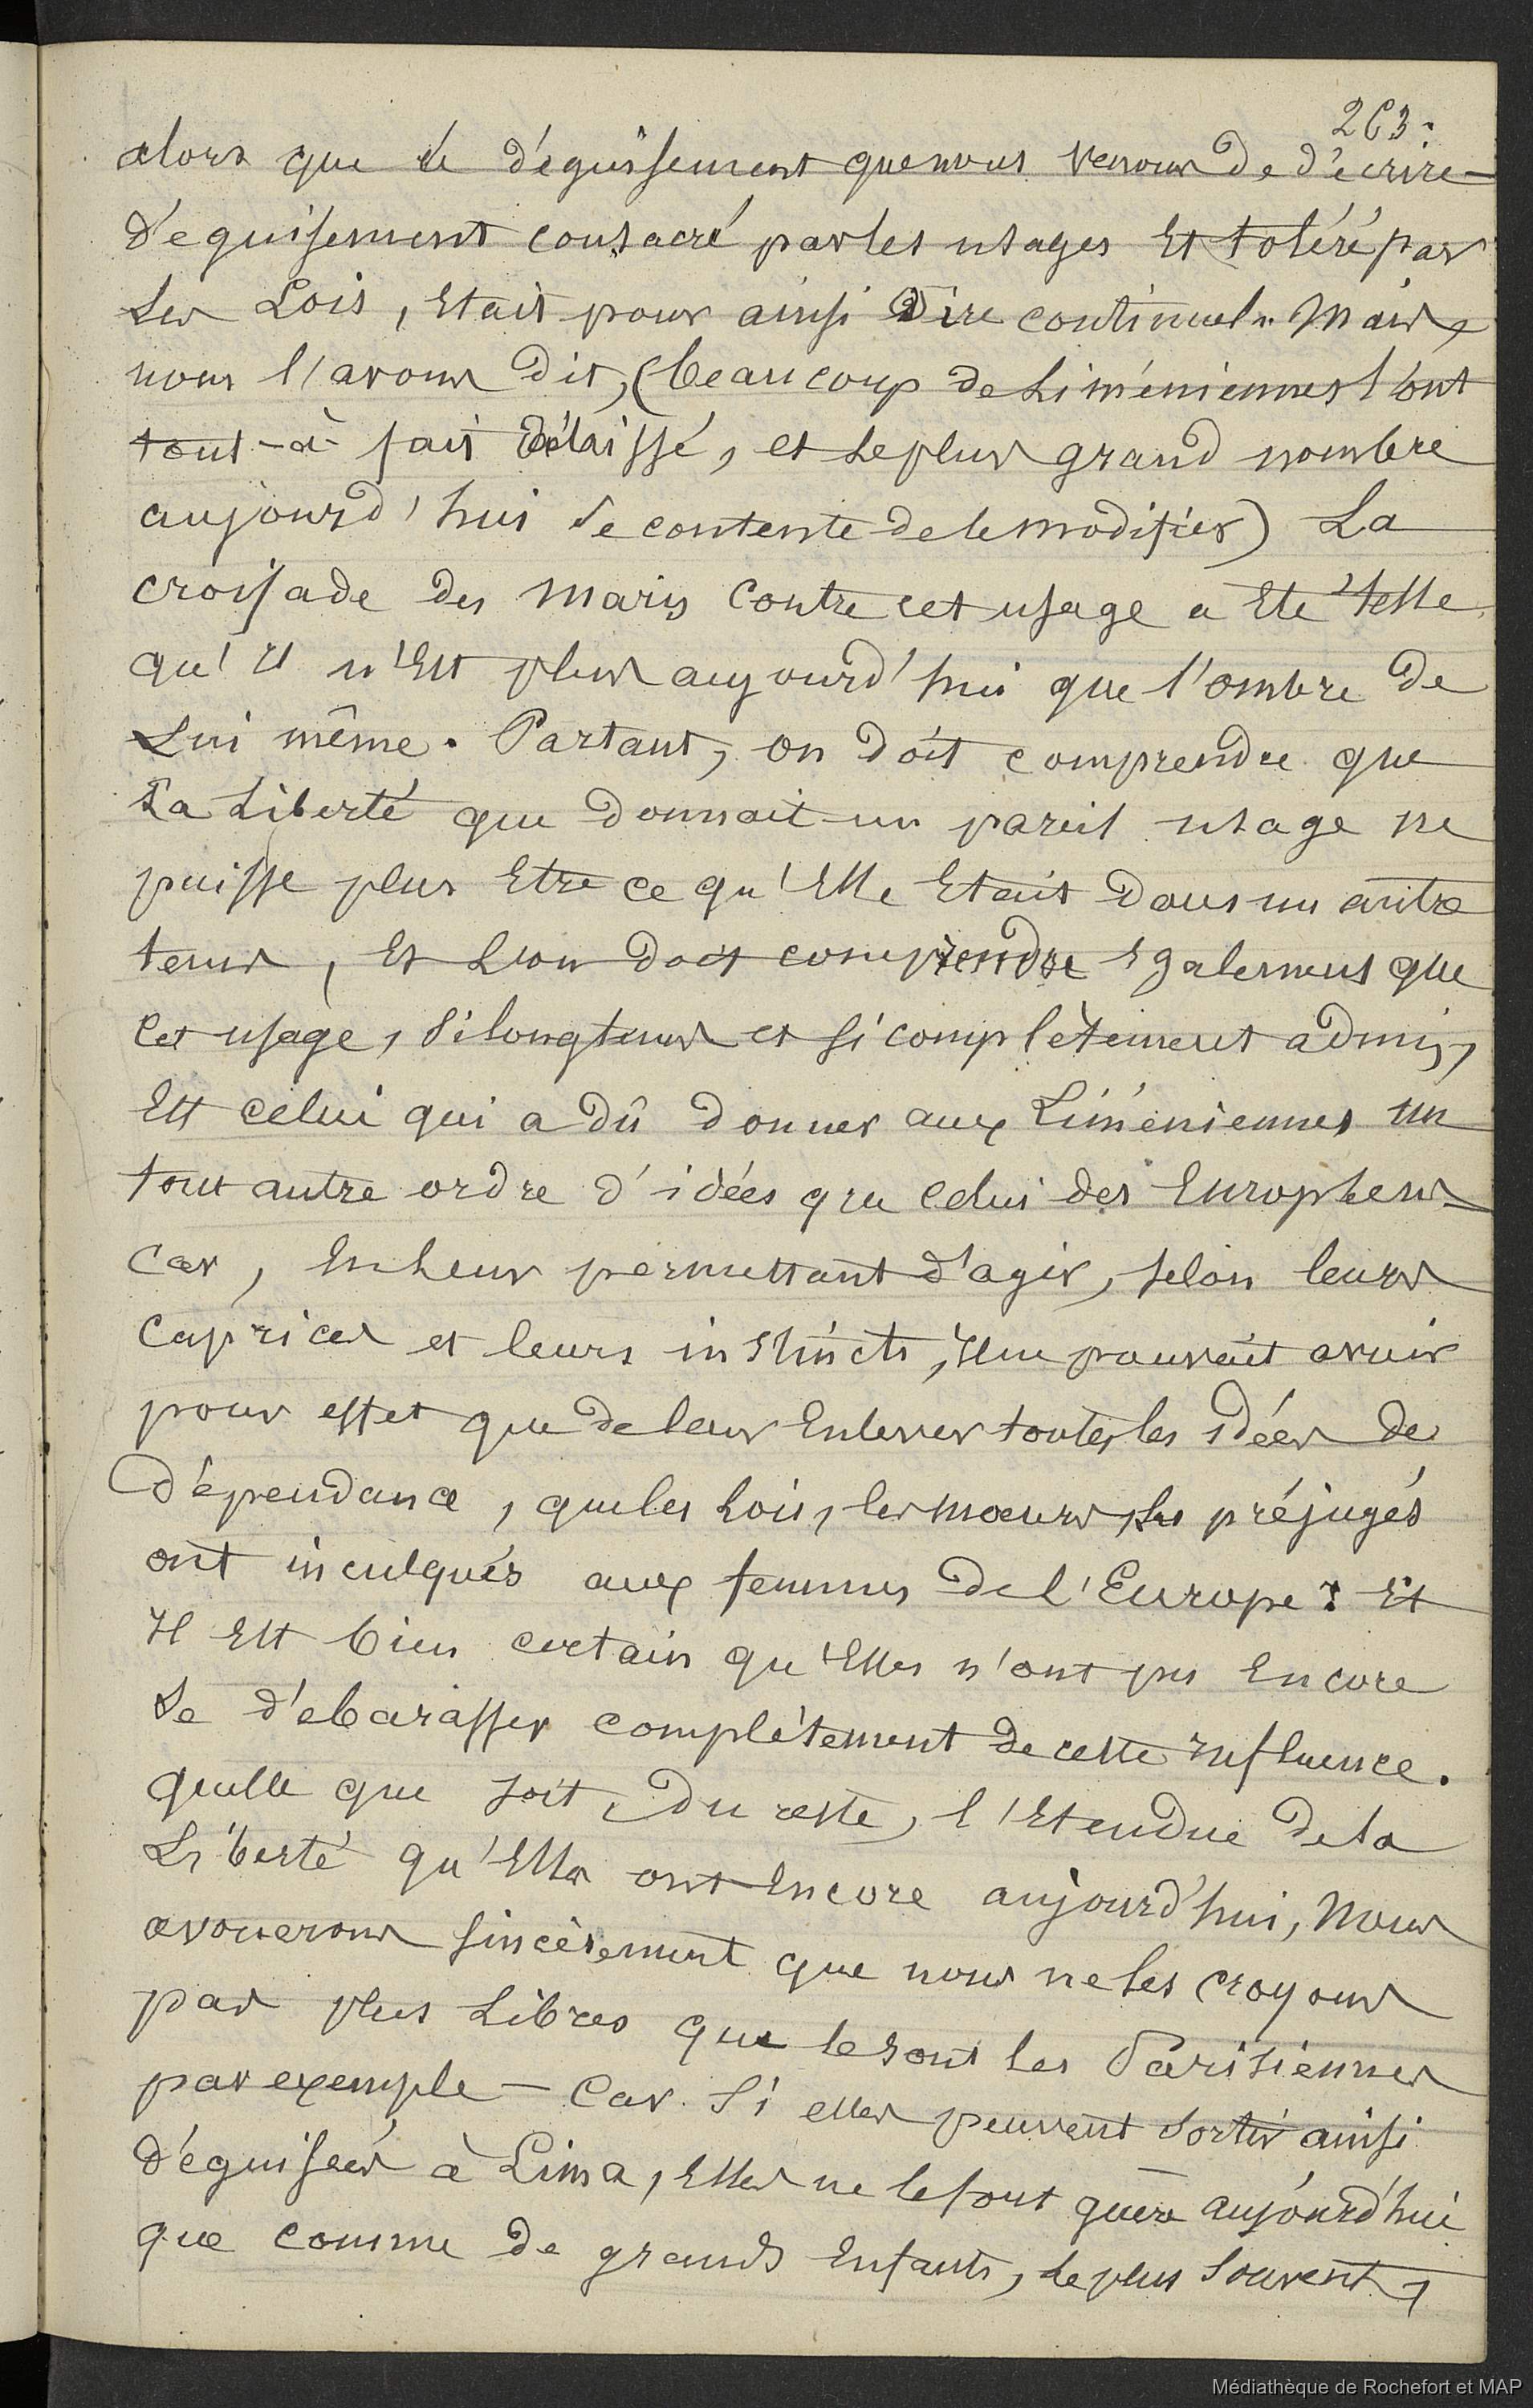 263.
alors que le déguissement que nous venons de décrire —
déguisement consacré par les usages Et toléré par
Les Lois, Etait pour ainsi Dire continuel. Mais,
nous l'avons dit, (beaucoup de Liméniennes l'ont
tout-à-fait délaissé, et Le plus grand nombre
aujourd'hui se contente de le modifier) La
croisade des maris contre cet usage a Eté telle
qu'il n'Est plus aujourd'hui que l'ombre de
Lui même. Partant, on doit comprendre que
La Liberté que donnait un pareil usage ne
puisse plus Etre ce qu'Elle Etait dans un autre
tems, Et L'on doit comprendre Egalement que
cet usage, si longtems et si complètement admis,
Est celui qui a dû donner aux Liméniennes un
tout autre ordre d'idées que celui des Européens —
car, En Leur permettant d'agir, selon leurs
caprices et leurs instincts, il ne pouvait avoir
pour effet que de leur Enlever toutes les idées de
dépendance, que les Lois, les moeurs, les préjugés
ont inculqués aux femmes de l'Europe : Et
Il Est bien certain qu'Elles n'ont pu Encore
Se débarasser complètement de cette Influence.
quelle que soit, du reste, l'Etendue de la
Liberté qu'Elles ont Encore aujourd'hui, Nous
avouerons sincèrement que nous ne les croyons
pas plus Libres que le sont les Parisiennes
par exemple — Car si elles peuvent sortir ainsi
déguisées à Lima, Elles ne le font guère aujourd'hui
que comme de grands Enfants, Le plus souvent,
Médiathèque de Rochefort et MAP